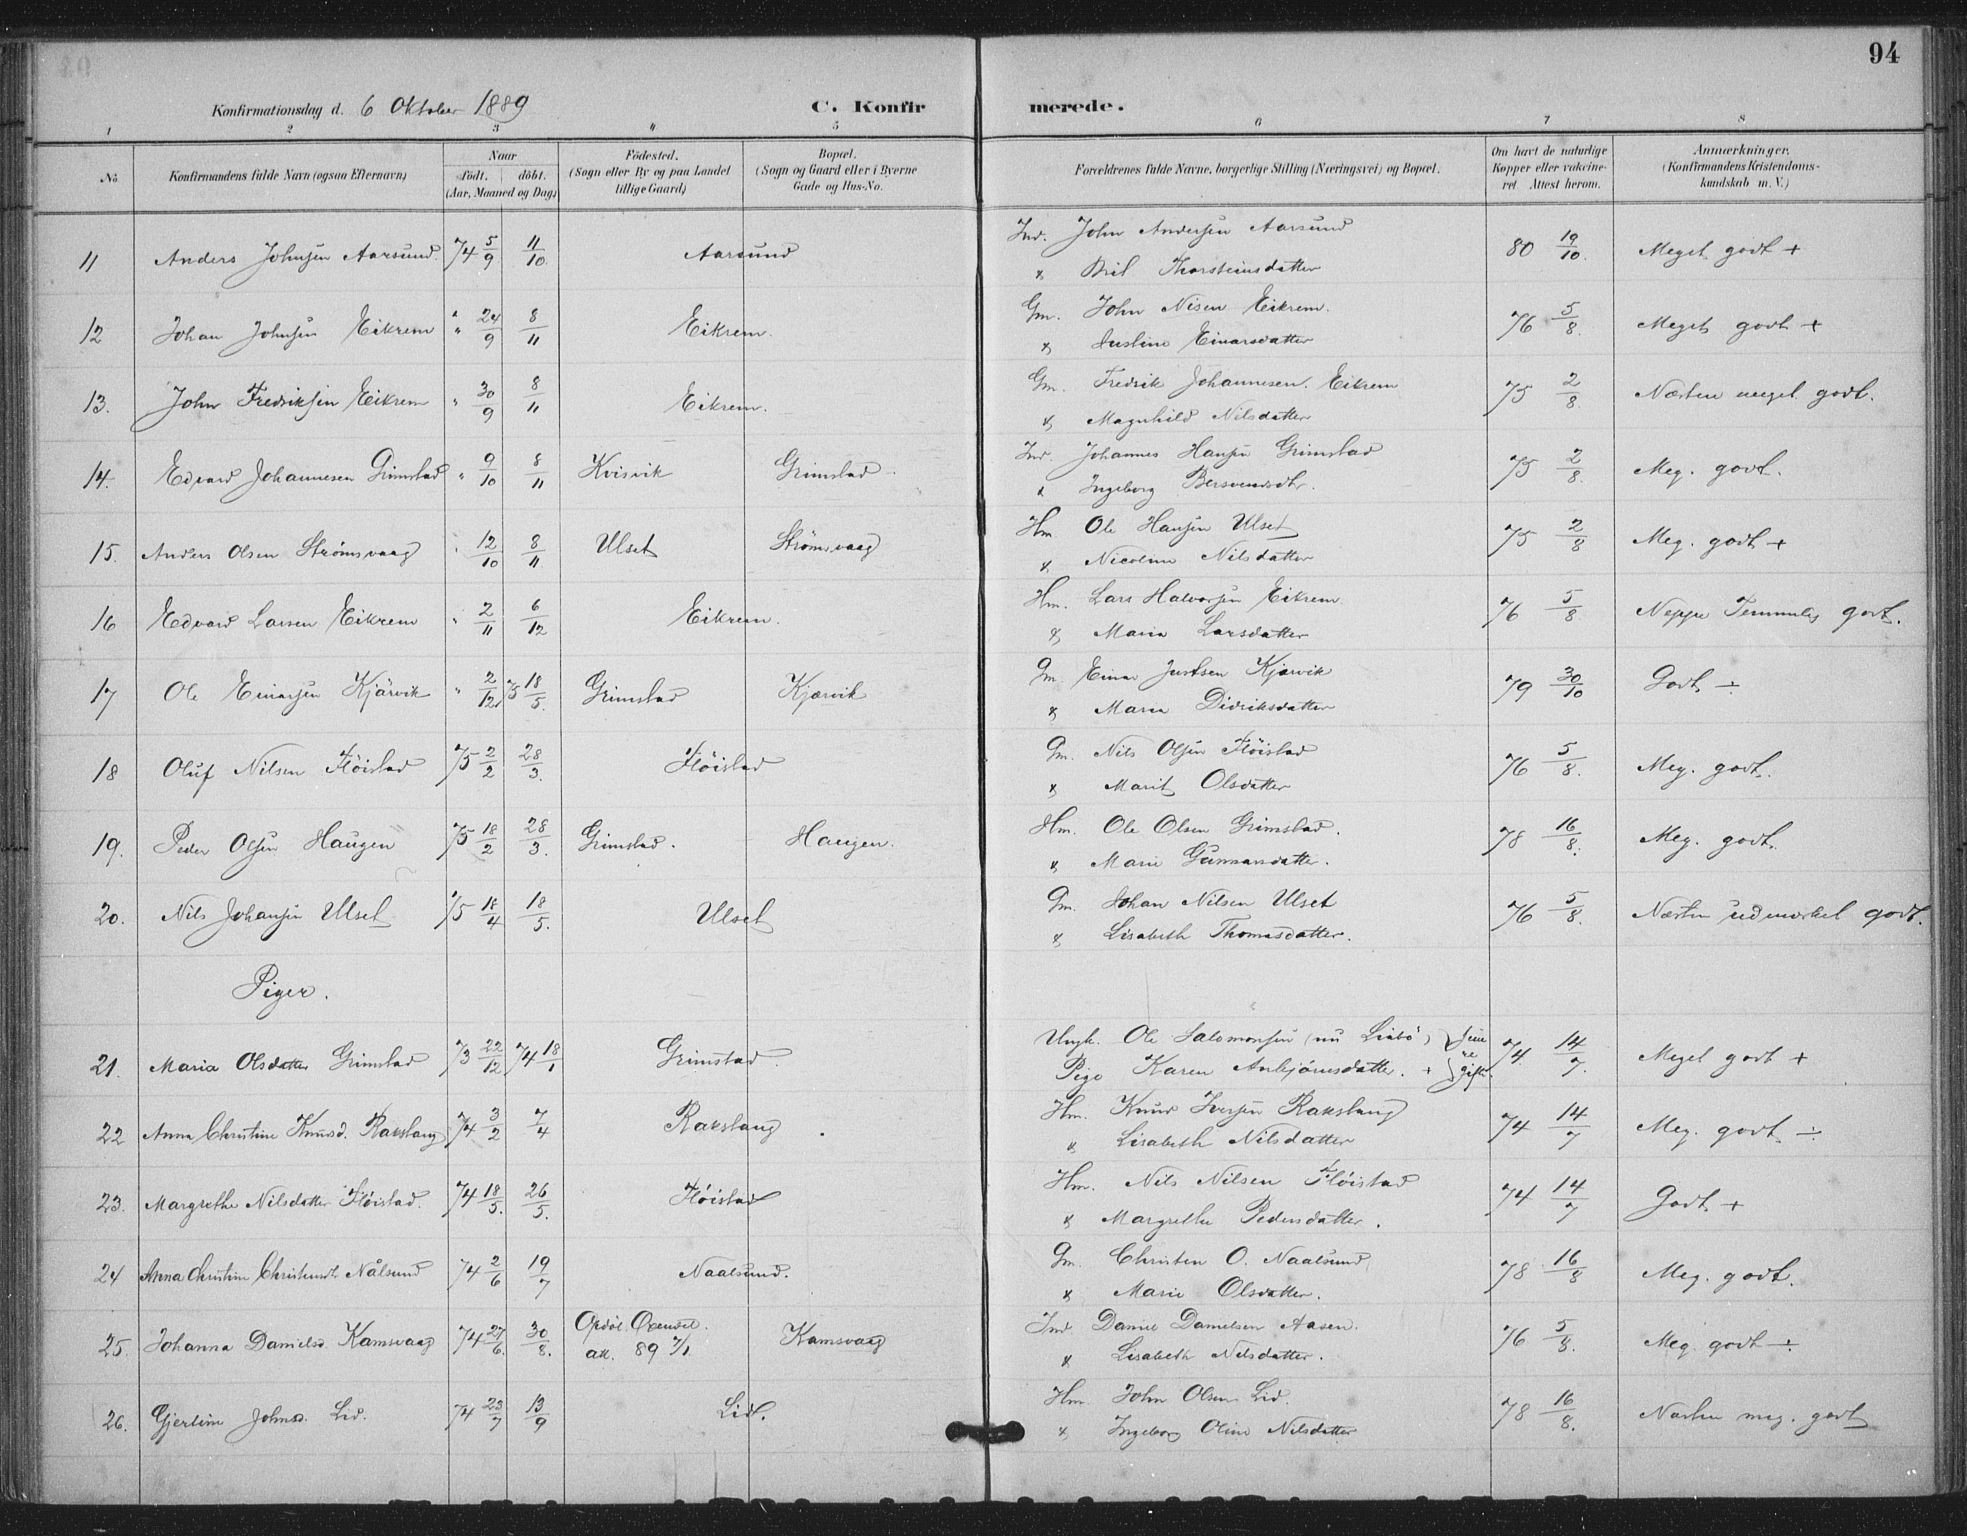 94
Konfirmationsdag d. 6 Oktober 1889 C. Konfirmerede.
1 2 3 4 5 6 7 8
No Konfirmandens fulde Navn (ogsaa Efternavn) Naar födt. döbt. (Aar, Maaned og Dag) Födested. (Sogn eller By og paa Landet tillige Gaard) Bopæl. (Sogn og Gaard eller i Byerne Gade og Hus-No. Forældrenes fulde Navne, borgerlige Stilling (Næringsvei) og Bopæl. Om havt de naturlige Kopper eller vakcineret Attest herom. Anmærkninger. (Konfirmandens Kristendomskundskab m. V.)
11 Anders Johnsen Aarsund. 74 5/9 11/10 Aarsund Ind. John Andersen Aarsund 80 19/10. Meget godt +
& Brit Thorsteinsdatter
12 Johan Johnsen Eikrem " 24/9 8/11 Eikrem. Gm. John Nisen Eikrem. 76 5/8. Meget godt +
& Justine Einarsdatter
13. John Fredriksen Eikrem " 30/9 8/11 Eikrem. Gm. Fredrik Johannesen Eikrem 75 2/8. Næsten meget godt.
& Magnhild Nilsdatter
14. Edvard Johannesen Grimstad " 9/10 8/11 Kvisvik Grimstad Ind. Johannes Hansen Grimstad 75 2/8. Meg. godt.
& Ingeborg Bersvendsdt.
15. Anders Olsen Strömsvaag " 12/10 8/11 Ulset Strömsvaag Hm Ole Hansen Ulset 75 2/8 Meg. godt +
& Nicoline Nilsdatter
16 Edvard Larsen Eikrem " 2/11 6/12 Eikrem. Hm. Lars Halvorsen Eikrem 76 5/8 Neppe Temmelig godt.
& Maria Larsdatter
17 Ole Einarsen Kjärvik " 2/12 75 18/5. Grimstad Kjærvik Gm. Einar Justsen Kjærvik 79 30/10 Godt ÷
& Maria Didriksdatter
18 Oluf Nilsen Flöistad 75 2/2 28/3. Flöistad Gm. Nils Olsen Flöistad 76 5/8. Meg. godt.
& Marit Olsdatter
19. Peder Olsen Haugen 75 18/2 28/3. Grimstad. Haugen. Hm. Ole Olsen Grimstad. 78 16/8. Meg. godt.
& Marie Gunnarsdatter.
20. Nils Johansen Ulset 75 18/4 18/5. Ulset Gm. Johan Nilsen Ulset 76 5/8. Næsten udmærket godt.
& Lisabeth Thomasdatter.
Piger.
21. Maria Olsdatter Grimstad 73 22/12 74 18/1 Grimstad. Ungk. Ole Salomonsen (nu Liabö) 74 14/7. Meget godt +
Pige Karen Anbjörnsdatter. +
22 Anna Christine Knusd. Rakstang 74 3/2 7/4 Rakstang Hm. Knud Iversen Rakstang 74 14/7 Meg. godt ÷
& Lisabeth Nilsdatter
23. Margrethe Nilsdatter Flöistad. 74 18/5. 26/5. Flöistad Hm. Nils Nilsen Flöistad 74 14/7 Godt +
& Margrethe Pedersdatter.
24 Anna Christine Christensdt Nålsund 74 2/6 19/7 Naalsund. Gm. Christen O. Naalsund 78 16/8 Meg. godt.
& Marie Olsdatter.
25. Johanna Danielsd. Kamsvaag 74 27/6. 30/8. Opdöl. Öxendal. att. 89 7/1. Kamsvaag Ind Daniel Danielsen Aasen. 76 5/8. Meg. godt ÷
& Lisabeth Nilsdatter.
26. Gjertine Johnsd. Lid. 74 23/7 13/9 Lid. Hm. John Olsen Lid. 78 16/8. Næsten meg. godt
& Ingeborg Oline Nilsdatter